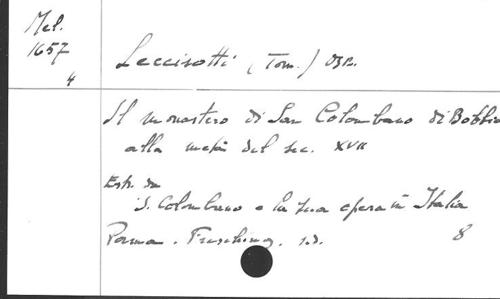 Mel.
1657
4
Leccisotti (Tom.) OSB.
Il monastero di San Colombano di Bobbio
alla metà del sec. XVII
Estr. da
S. Colombano e la sua opera in Italia
Parma. s.d.
8